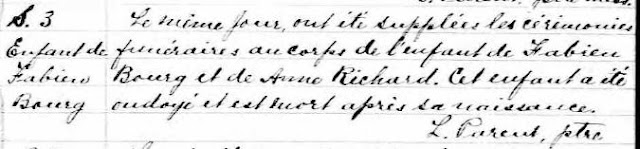 S. 3 Le même jour, ont été supplées les cérémonies
Enfant de funéraires au corps de l'enfant de Fabien
Fabien Bourg et de Anne Richard. Cet enfant a été
Bourg ondoyé et est mort après sa naissance.
L. Parent, ptre